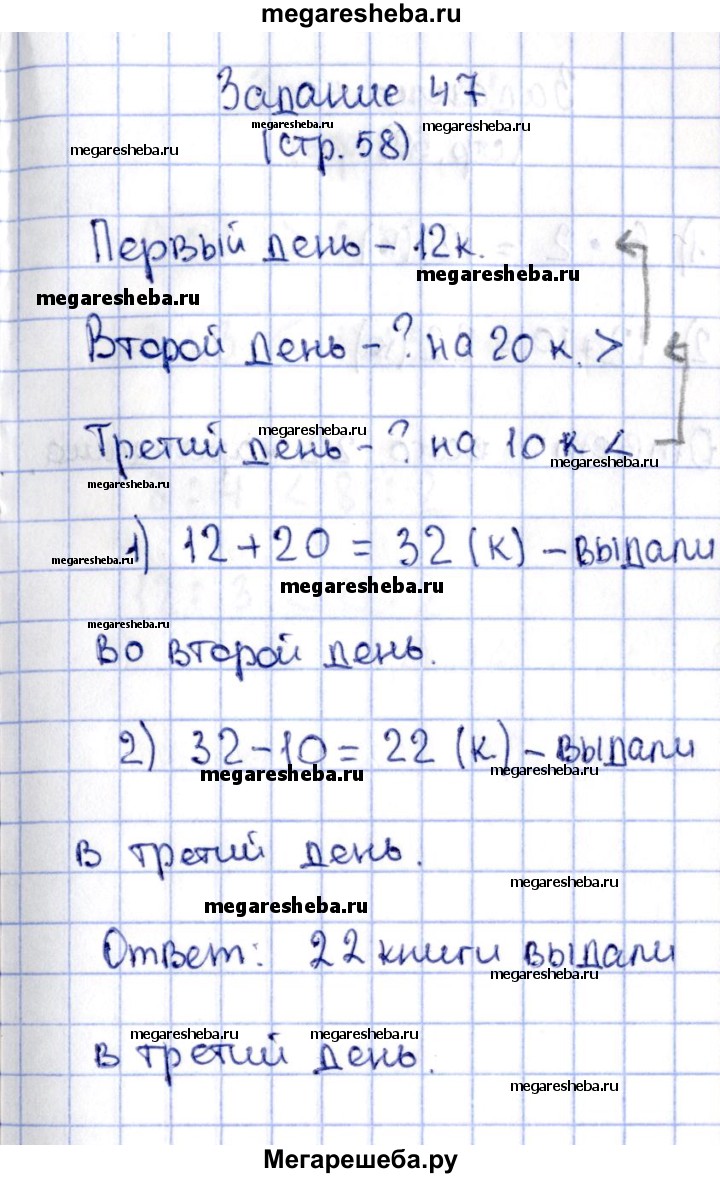 megaresheba.ru
Задание 47
megaresheba.ru
megaresheba.ru
megaresheba.ru
(стр. 58)
Первый день - 12 к.
megaresheba.ru
megaresheba.ru
Второй день - ? на 20 к. >
megaresheba.ru
Третий день - ? на 10 к <
megaresheba.ru
megaresheba.ru
1) 12 + 20 = 32 (к) - выдали
megaresheba.ru
megaresheba.ru
megaresheba.ru
во второй день.
2) 32 - 10 = 22 (к.) - выдали
megaresheba.ru
megaresheba.ru
в третий день.
megaresheba.ru
megaresheba.ru
Ответ: 22 книги выдали
megaresheba.ru
megaresheba.ru
megaresheba.ru
в третий день.
megaresheba.ru
Мегарешеба.ру